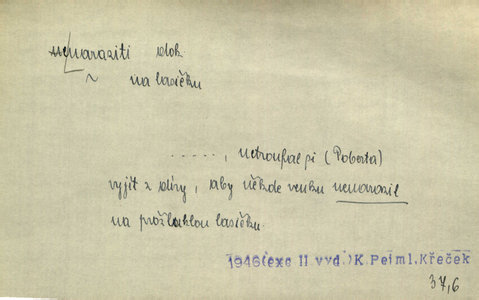 nenaraziti dok.
~ na lasičku
....., netroufal si (Poberta)
vyjít z díry, aby někde venku nenarazil
na prožluklou lasičku.
1946(exc II vyd.) K. Pejml, Křeček
37,6